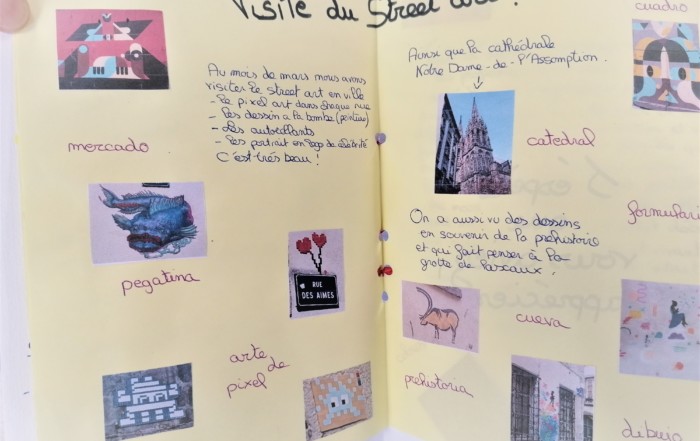 Visite du Street art !
Au mois de mars nous avons
visiter le street art en ville
- le pixel art dans chaque rue
- Les dessin a la bombe (peinture)
- Les autocollants
- Les portrait en Logo de célébrité
C'est très beau !
mercado
pegatina
RUE
DES AIMES
arte de
pixel
cuadro
Ainsi que la cathédrale
Notre Dame-de-l'Assomption.
catedral
On a aussi vu des dessins
en souvenir de la prehistoire
et qui fait penser à la
grotte de Lascaux.
formulari
cueva
prehistoria
dibujo